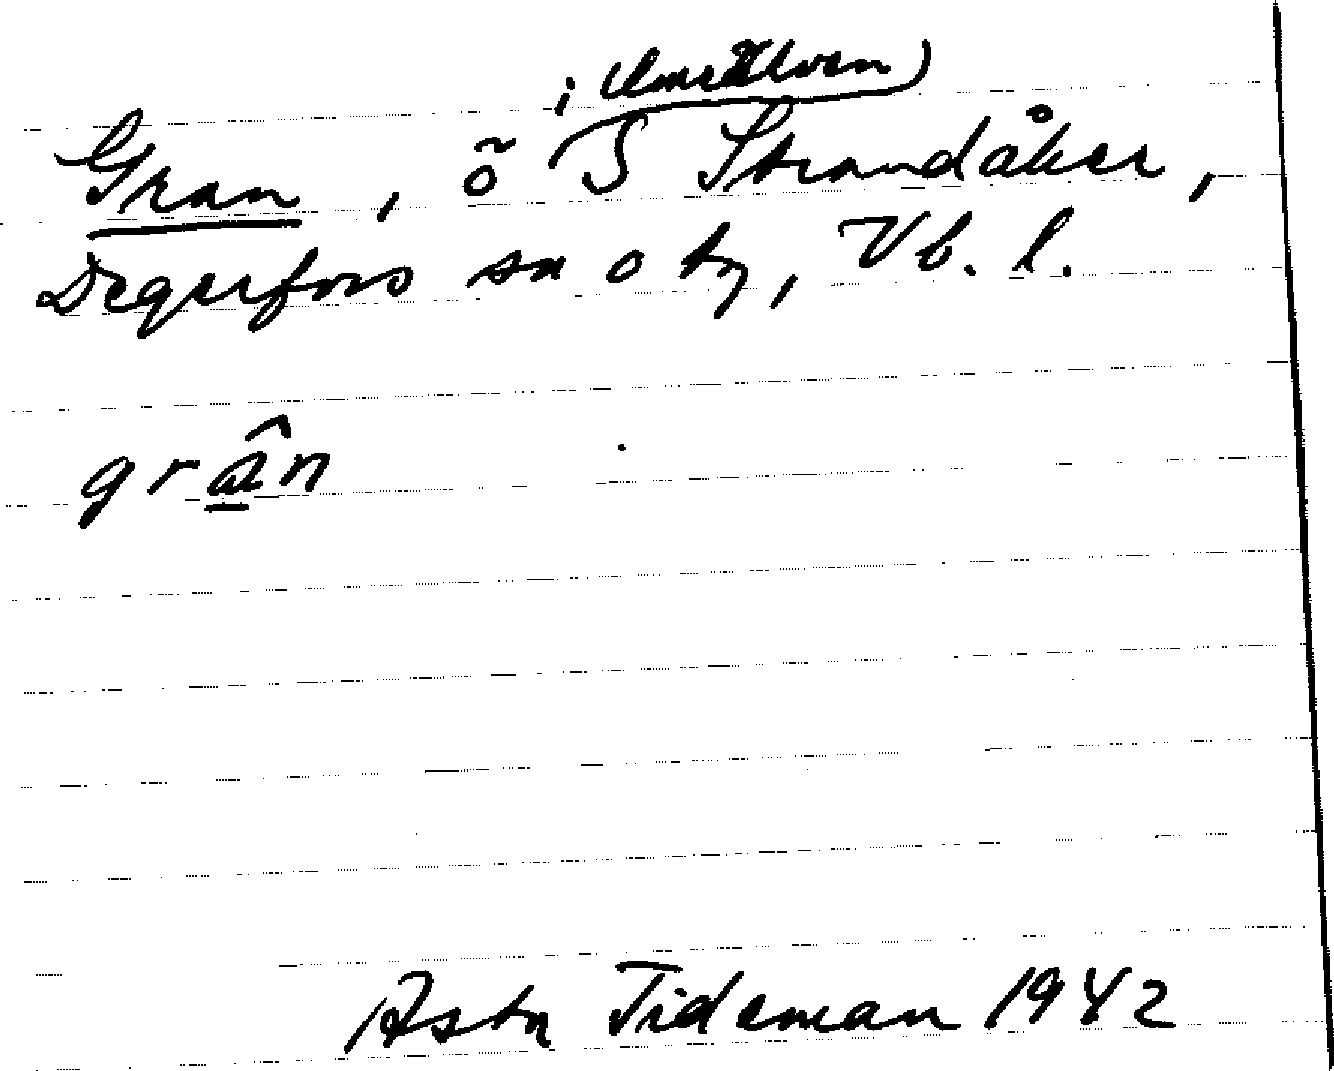 i Umeälven)
Gran, ö S Strandåker,
Degerfors sn o tg, Vb. l.
grân
Asta Tideman 1942